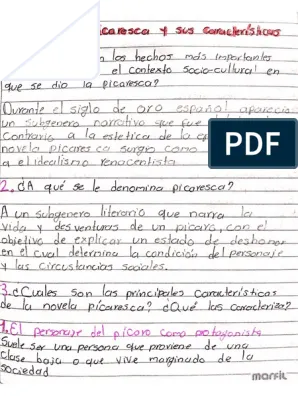 caresca y sus características
n los hechos más importantes
el contexto socio-cultural en
que se dio la picaresca?
Durante el siglo de oro español apareció
un subgenero narrativo que fue
Contrario a la estetica de la ep
novela picaresca surgio como
a el idealismo renacentista.
PDF
2. ¿A qué se le denomina picaresca?
A un subgenero literario que narra la
vida y desventuras de un picaro, con el
objetivo de explicar un estado de deshonor
en el cual determina la condición del personaje
y las circustancias sociales.
3. ¿Cuales son las principales características
de la novela picaresca? ¿Qué las caracteriza?
1. El personaje del pícaro como protagonista
Suele ser una persona que proviene de una
clase baja o que vive marginado de la
sociedad
marfil